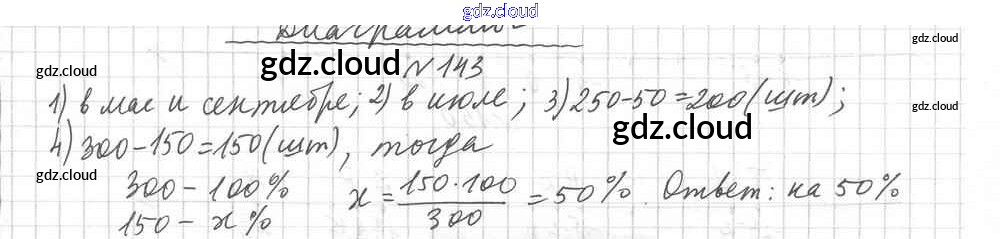 gdz.cloud
Диаграммы
gdz.cloud
gdz.cloud
gdz.cloud № 143
1) в мае и сентябре; 2) в июле; 3) 250-50=200(шт);
gdz.cloud
gdz.cloud
gdz.cloud
4) 300-150=150(шт), тогда
300 - 100% x = 150·100/300 = 50%. Ответ: на 50%
150 - x%